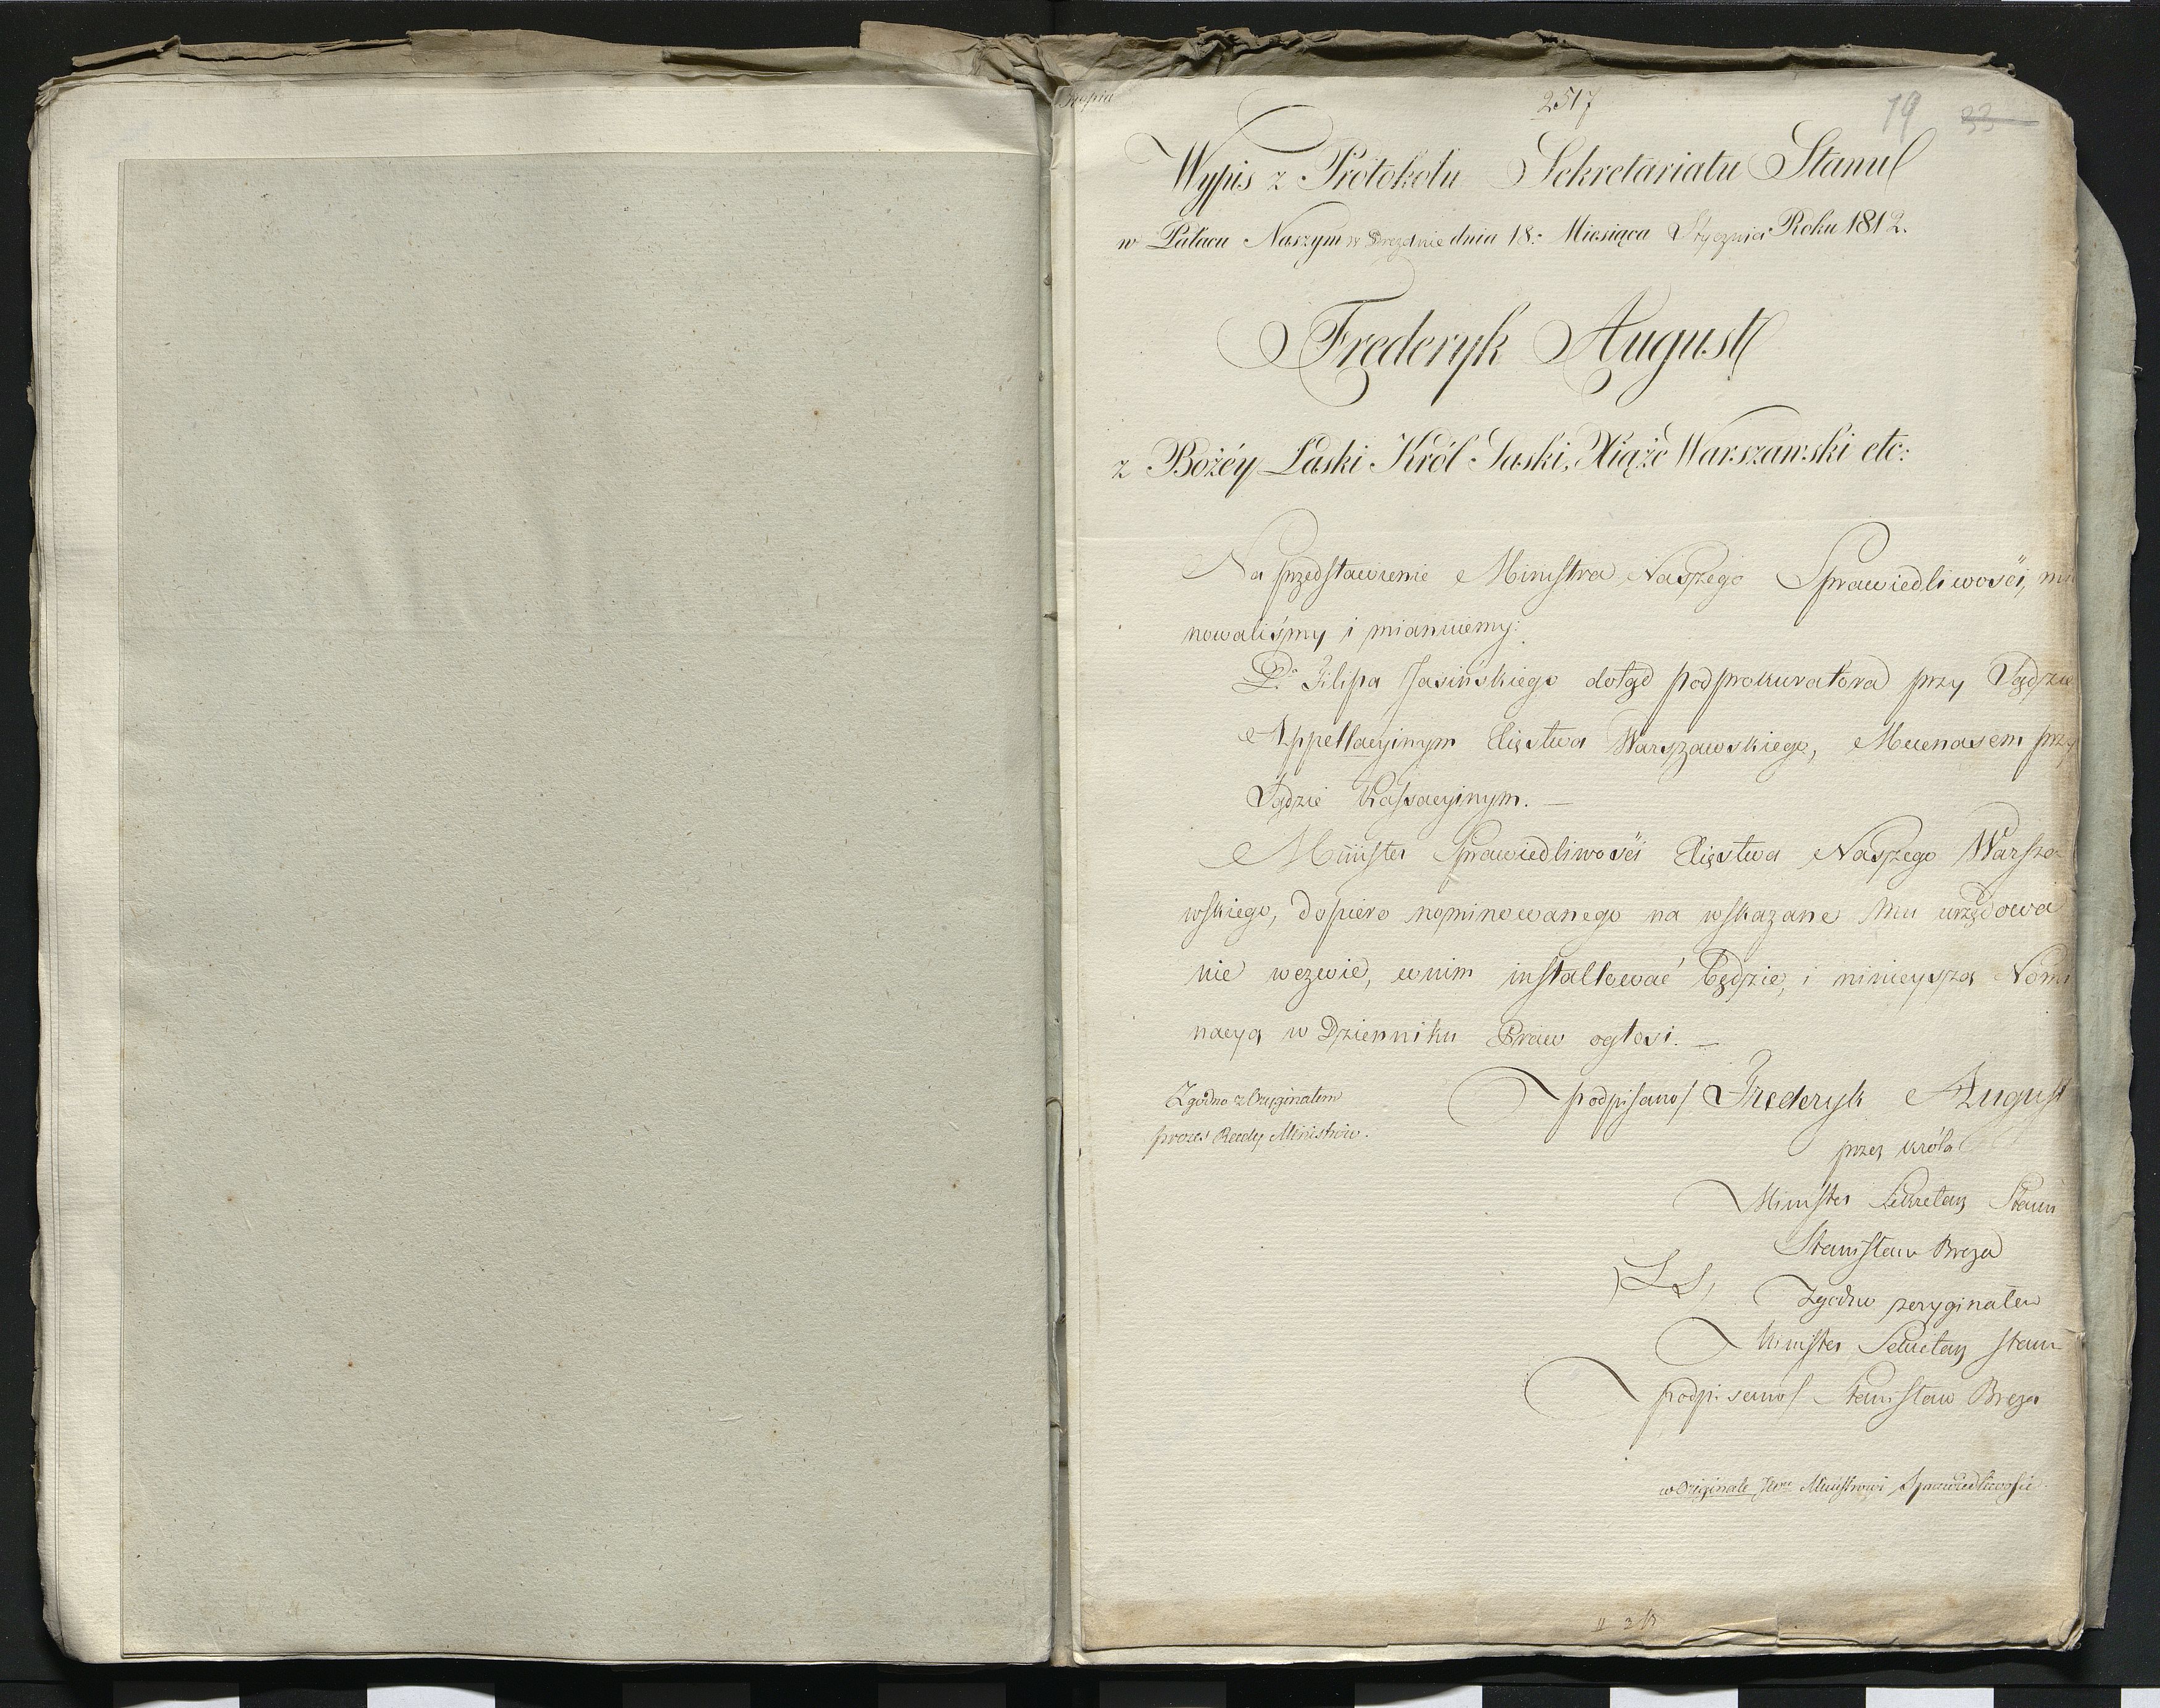 Kopia
2517
19 33
Wypis z Protokołu Sekretariatu Stanu
w Pałacu Naszym w Dreznie dnia 18: Miesiąca Stycznia Roku 1812.
Frederyk August
z Bożéy Łaski Król Saski, Xiąże Warszawski etc:
Na przedstawienie Ministra Naszego Sprawiedliwości, mia
nowaliśmy i mianuiemy:
P. Filipa Jasińskiego dotąd podprokuratora przy Sądzie
Appellacyinym Xięstwa Warszawskiego, Mecenasem przy
Sądzie Kassacyinym. —
Minister Sprawiedliwości Xięstwa Naszego Warsza
wskiego, dopiero nominowanego na wskazane mu urzędowa
nie wezwie, w nim installować będzie, i ninieyszą Nomi
nacyą w Dzienniku Praw ogłosi. —
Zgodno z Oryginałem
prezes Rady Ministrów.
podpisano/ Frederyk August
przez króla
Minister Sekretarz Stanu
Stanisław Breza
(L S)
Zgodno z oryginałem
Minister Sekretarz Stanu
podpisano/ Stanisław Breza
w Originale JWmu Ministrowi Sprawiedliwości